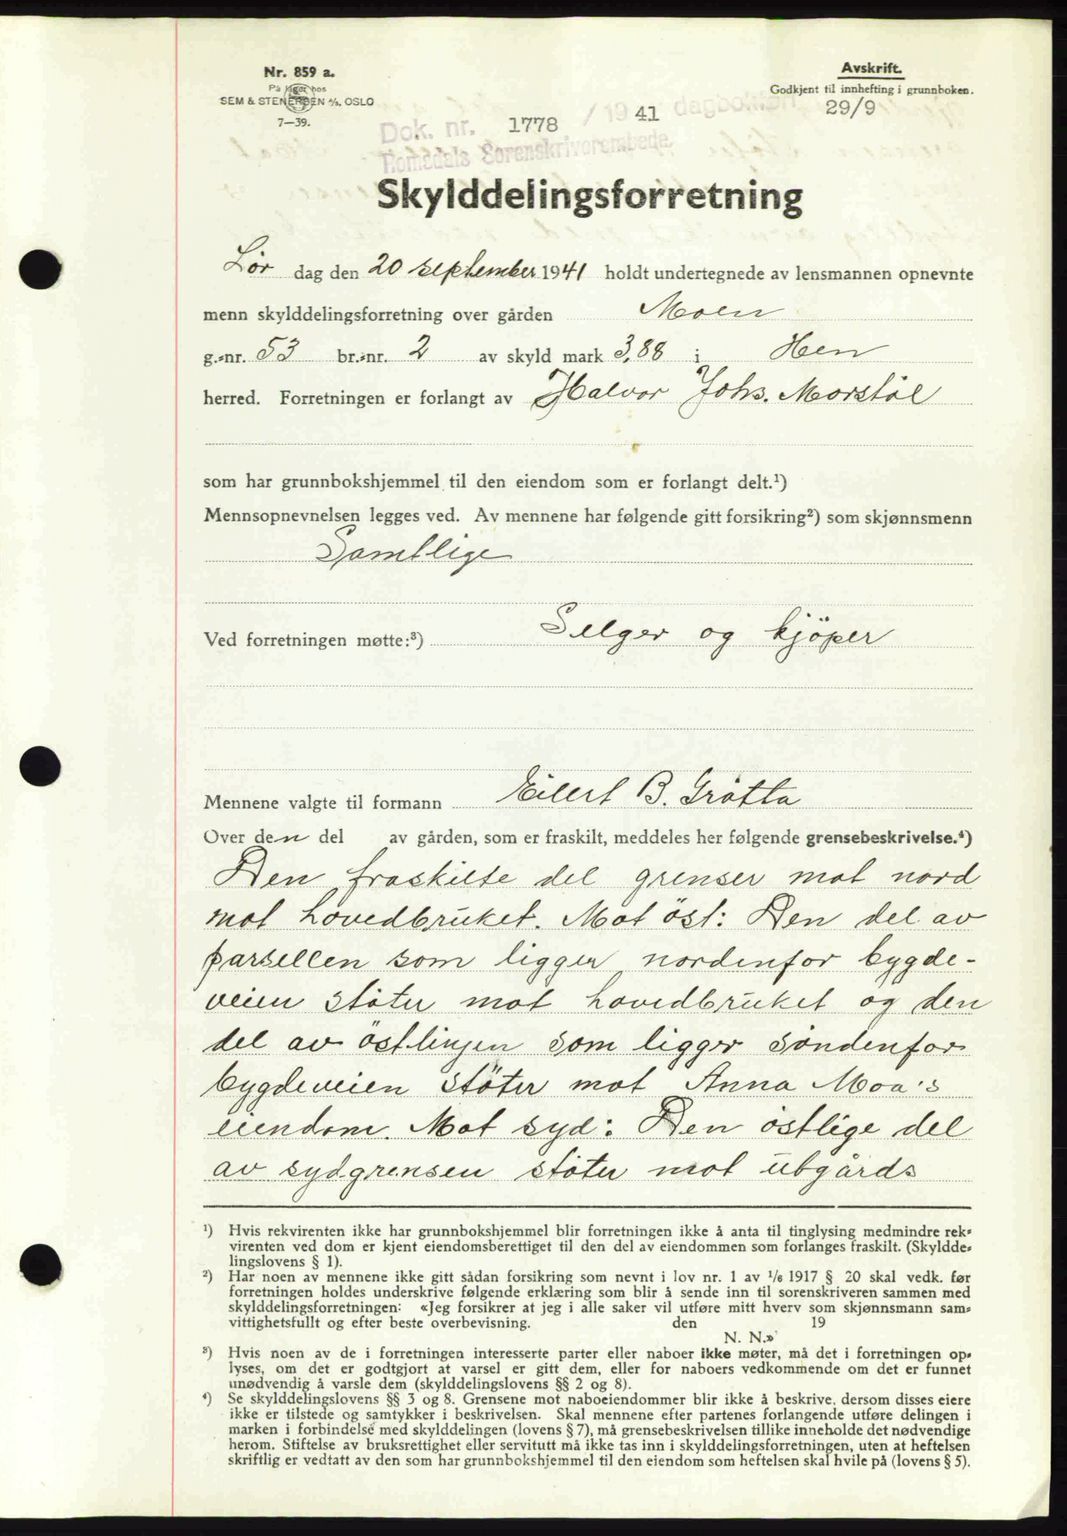 Nr. 859 a.
På lager hos
SEM & STENERSEN A/S. OSLO
7—39.
Avskrift.
Godkjent til innhefting i grunnboken.
29/9
Dok. nr. 1778 / 19 41 dagboken
Romsdals Sorenskriverembede
Skylddelingsforretning
Lør dag den 20 september 1941 holdt undertegnede av lensmannen opnevnte
menn skylddelingsforretning over gården Moen
g.-nr. 53 br.-nr. 2 av skyld mark 3,88 i Hen
herred. Forretningen er forlangt av Halvor Johs. Morstøl
som har grunnbokshjemmel til den eiendom som er forlangt delt.¹)
Mennsopnevnelsen legges ved. Av mennene har følgende gitt forsikring²) som skjønnsmenn
Samtlige
Ved forretningen møtte:³) Selger og kjöper
Mennene valgte til formann Eilert B. Grøtta
Over den del av gården, som er fraskilt, meddeles her følgende grensebeskrivelse.⁴)
Den fraskilte del grenser mot nord
mot hovedbruket. Mot öst: Den del av
parsellen som ligger nordenfor bygde-
veien støter mot hovedbruket og den
del av östlinjen som ligger søndenfor
bygdeveien støter mot Anna Moa's
eiendom. Mot syd: Den østlige del
av sydgrensen støter mot utgårds
¹) Hvis rekvirenten ikke har grunnbokshjemmel blir forretningen ikke å anta til tinglysing medmindre rek-
virenten ved dom er kjent eiendomsberettiget til den del av eiendommen som forlanges fraskilt. (Skyldde-
lingslovens § 1).
²) Har noen av mennene ikke gitt sådan forsikring som nevnt i lov nr. 1 av ¹/₆ 1917 § 20 skal vedk. før
forretningen holdes underskrive følgende erklæring som blir å sende inn til sorenskriveren sammen med
skylddelingsforretningen: «Jeg forsikrer at jeg i alle saker vil utføre mitt hverv som skjønnsmann sam-
vittighetsfullt og efter beste overbevisning. den 19
N. N.»
³) Hvis noen av de i forretningen interesserte parter eller naboer ikke møter, må det i forretningen op-
lyses, om det er godtgjort at varsel er gitt dem, eller for naboers vedkommende om det er funnet
unødvendig å varsle dem (skylddelingslovens §§ 2 og 8).
⁴) Se skylddelingslovens §§ 3 og 8. Grensene mot naboeiendommer blir ikke å beskrive, dersom disses eiere
ikke er tilstede og samtykker i beskrivelsen. Skal mennene efter partenes forlangende utføre delingen i
marken i forbindelse med skylddelingen (lovens § 7), må grensebeskrivelsen tillike inneholde det nødvendige
herom. Stiftelse av bruksrettighet eller servitutt må ikke tas inn i skylddelingsforretningen, uten at heftelsen
skriftlig er vedtatt av den som har grunnbokshjemmel til den eiendom som heftelsen skal hvile på (lovens § 5).